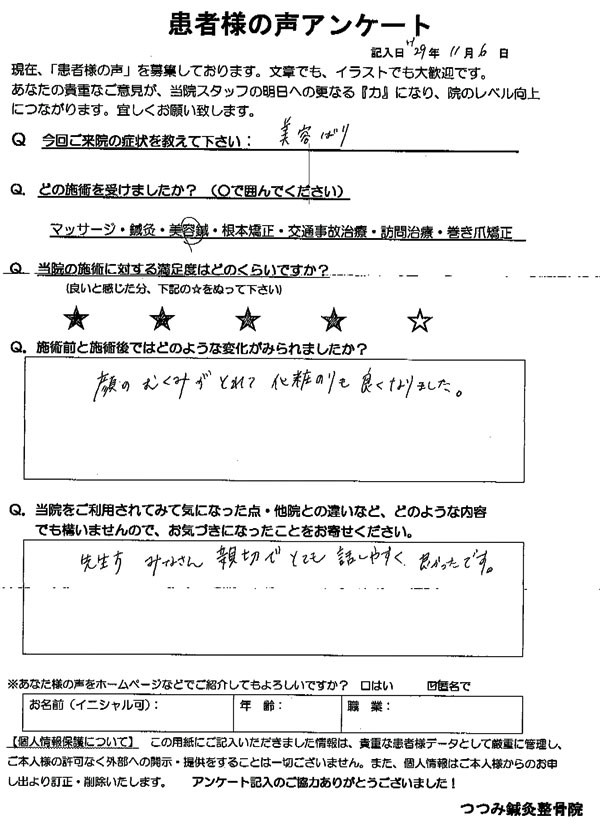 患者様の声アンケート
記入日 H29年 11月 6日
現在、「患者様の声」を募集しております。文章でも、イラストでも大歓迎です。
あなたの貴重なご意見が、当院スタッフの明日への更なる『力』になり、院のレベル向上
につながります。宜しくお願い致します。
Q 今回ご来院の症状を教えて下さい： 美容ばり
Q. どの施術を受けましたか？（〇で囲んでください）
マッサージ・鍼灸・美容鍼・根本矯正・交通事故治療・訪問治療・巻き爪矯正
Q. 当院の施術に対する満足度はどのくらいですか？
(良いと感じた分、下記の☆をぬって下さい)
★ ★ ★ ★ ☆
Q. 施術前と施術後ではどのような変化がみられましたか？
顔の むくみが とれて 化粧のりも 良くなりました。
Q. 当院をご利用されてみて気になった点・他院との違いなど、どのような内容
でも構いませんので、お気づきになったことをお寄せください。
先生方 みなさん 親切で とても 話しやすく 良かったです。
※あなた様の声をホームページなどでご紹介してもよろしいですか？ □はい ☑匿名で
お名前（イニシャル可）： 年 齢： 職 業：
【個人情報保護について】 この用紙にご記入いただきました情報は、貴重な患者様データとして厳重に管理し、
ご本人様の許可なく外部への開示・提供をすることは一切ございません。また、個人情報はご本人様からのお申
し出より訂正・削除いたします。 アンケート記入のご協力ありがとうございました！
つつみ鍼灸整骨院